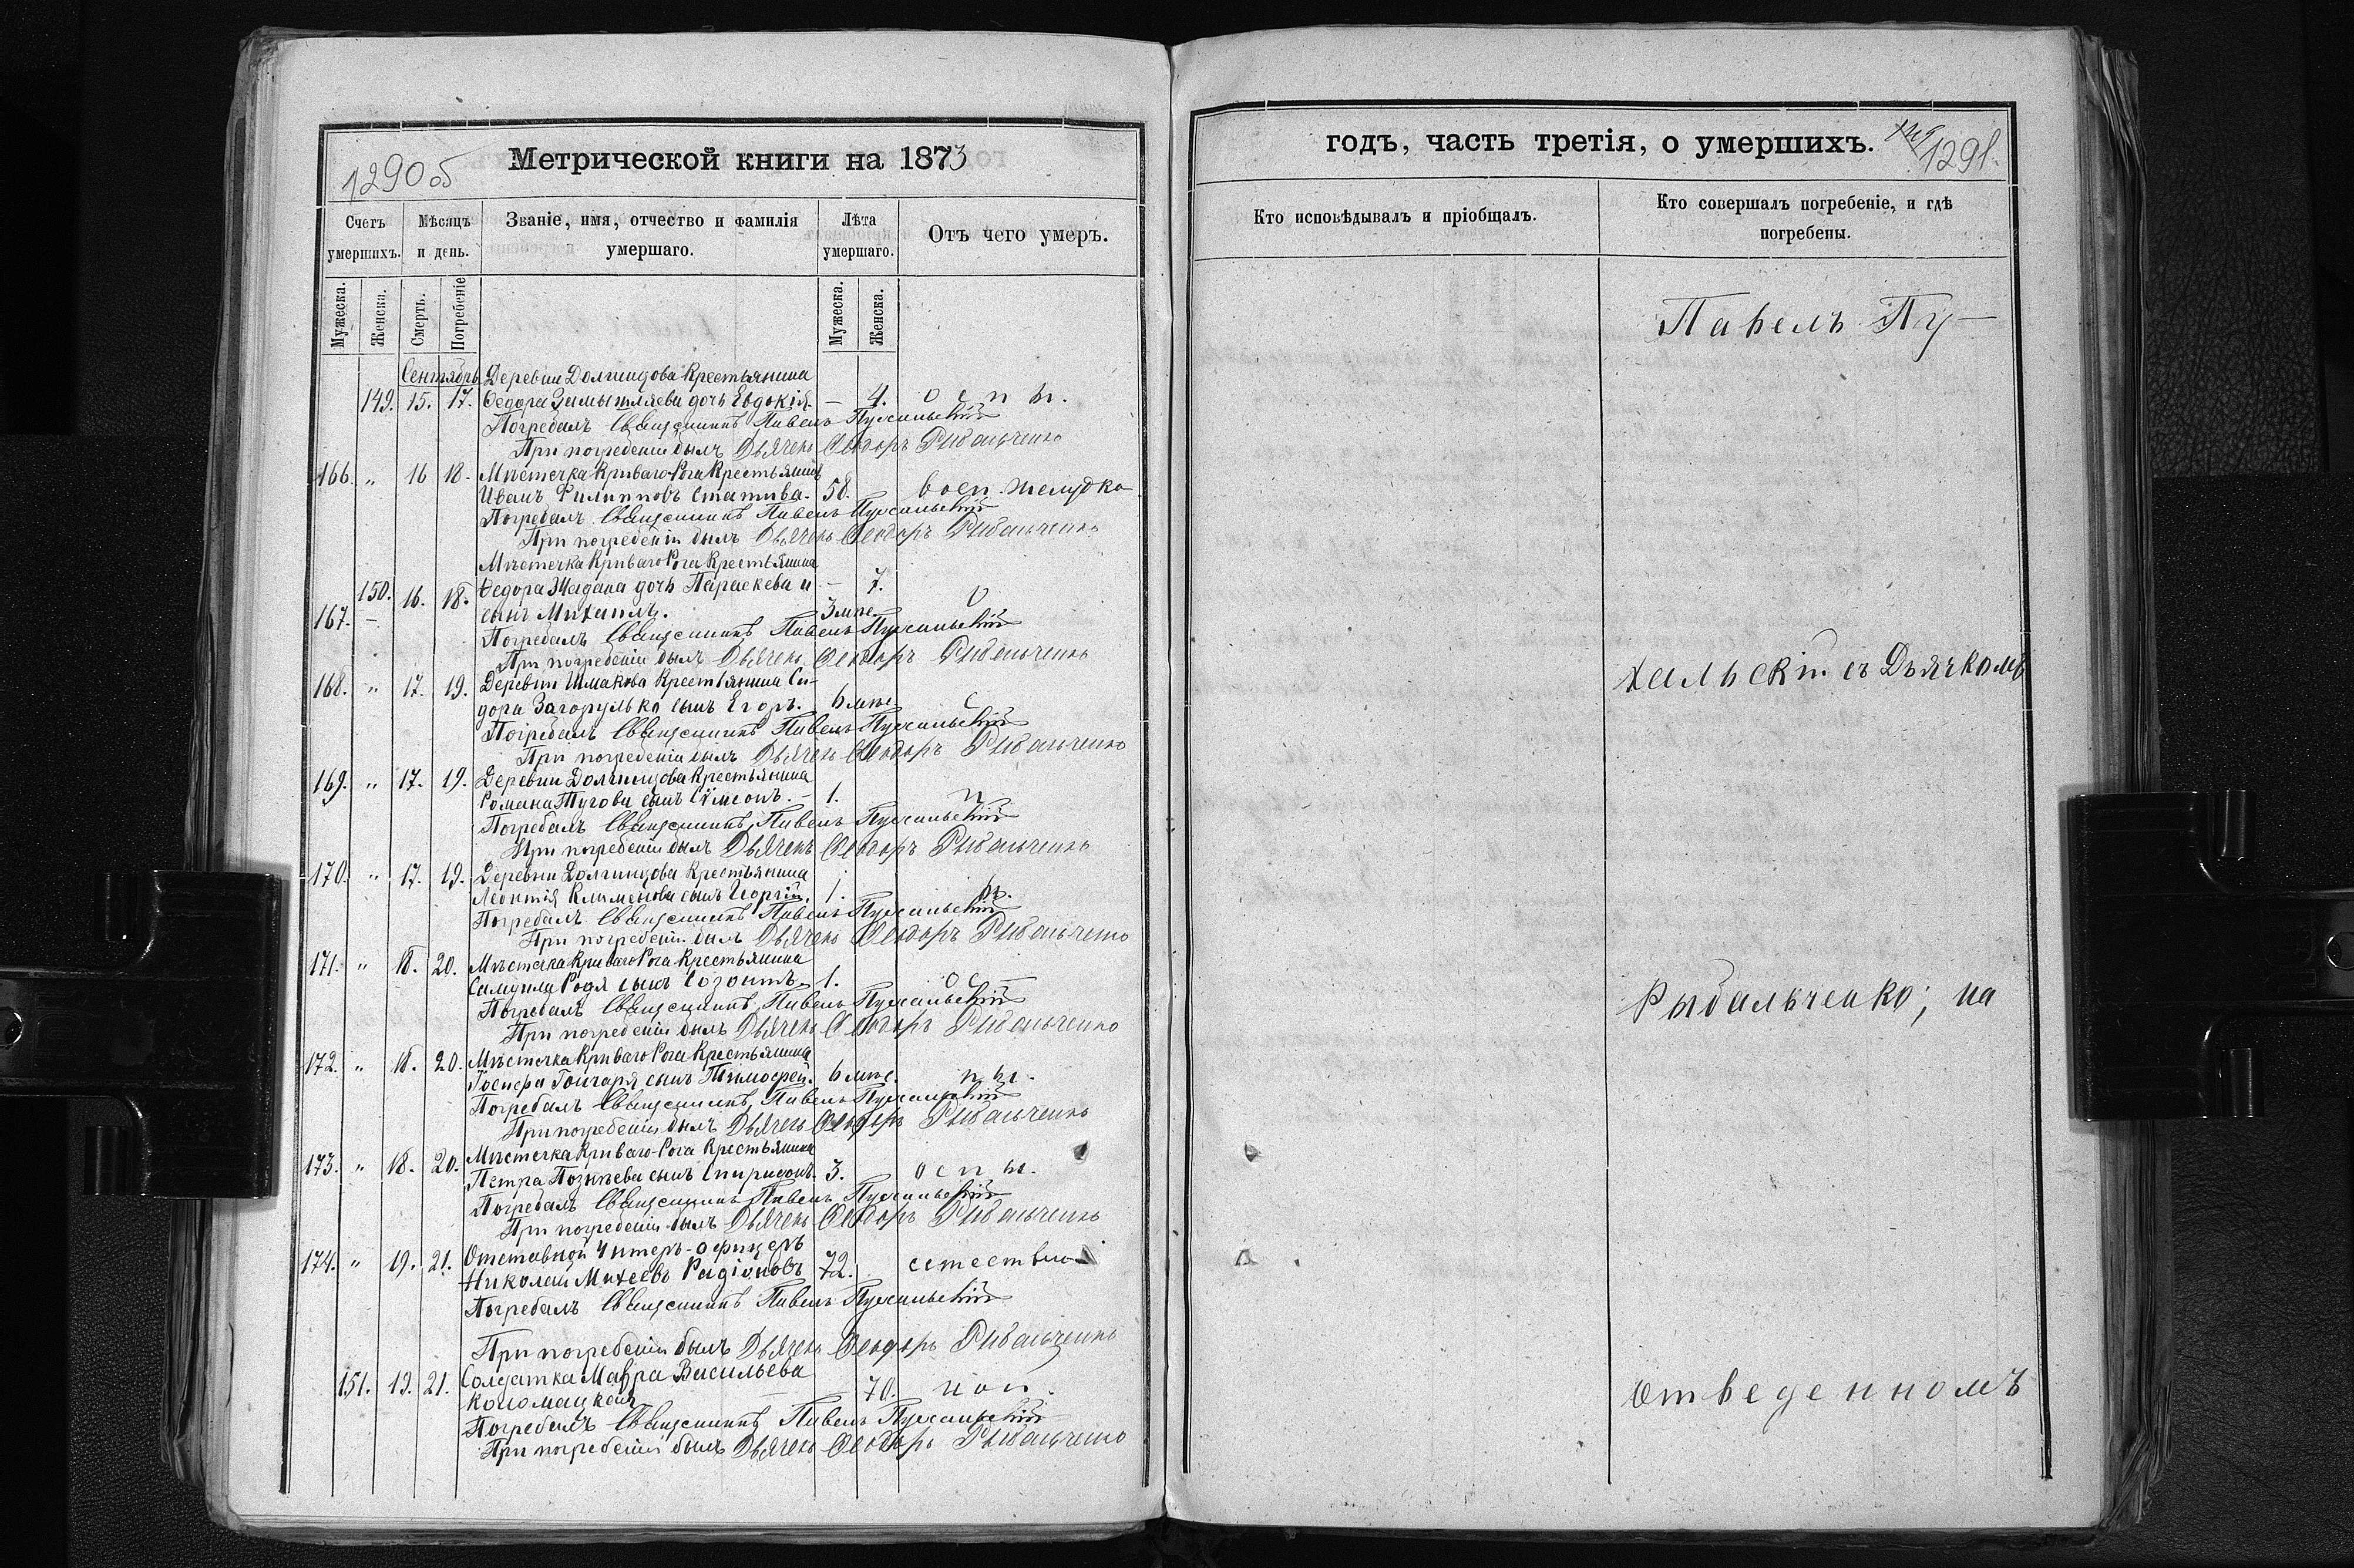 1290 об
Метрической книги на 1873
Счетъ умершихъ.
Мѣсяцъ и день.
Званіе, имя, отчество и фамилія умершаго.
Лѣта умершаго.
Отъ чего умеръ.
Мужеска.
Женска.
Смерть.
Погребеніе
Мужеска.
Женска.
Сентябрь
Деревни Долгинцова Крестьянина
149. 15. 17. Ѳедора дочь Евдокія. — 4. оспы.
Погребалъ Священникъ Павелъ Пухальскій
При погребеніи былъ Дьячекъ Ѳеодоръ Рыбальченко
166. „ 16 18. Мѣстечка Криваго-Рога Крестьянинъ
Иванъ Филипповъ Статива. 58. восп. желудка
Погребалъ Священникъ Павелъ Пухальскій
При погребеніи былъ Дьячекъ Ѳеодоръ Рыбальченко
Мѣстечка Криваго Рога Крестьянина
150. 16. 18. Ѳедора Жадана дочь Параскева и — 7.
167. — сынъ Михаилъ. 3 мѣс. о
Погребалъ Священникъ Павелъ Пухальскій
При погребеніи былъ Дьячекъ Ѳеодоръ Рыбальченко
168. „ 17. 19. Деревни Шмакова Крестьянина Си-
дора Загорулько сынъ Егоръ. 6 мѣс. с
Погребалъ Священникъ Павелъ Пухальскій
При погребеніи былъ Дьячекъ Ѳеодоръ Рыбальченко
169. „ 17. 19. Деревни Долгинцова Крестьянина
Романа сынъ Сѵмеонъ. — 1. п
Погребалъ Священникъ Павелъ Пухальскій
При погребеніи былъ Дьячекъ Ѳеодоръ Рыбальченко
170. „ 17. 19. Деревни Долгинцова Крестьянина
Леонтія Клименова сынъ Георгій. 1. ы.
Погребалъ Священникъ Павелъ Пухальскій
При погребеніи былъ Дьячекъ Ѳеодоръ Рыбальченко
171. „ 18. 20. Мѣстечка Криваго Рога Крестьянина
Самуила Родя сынъ Созонтъ. 1. ос
Погребалъ Священникъ Павелъ Пухальскій
При погребеніи былъ Дьячекъ Ѳеодоръ Рыбальченко
172. „ 18. 20. Мѣстечка Криваго Рога Крестьянина
Гончаря сынъ Тимоѳей. 6 мѣс. пы.
Погребалъ Священникъ Павелъ Пухальскій
При погребеніи былъ Дьячекъ Ѳеодоръ Рыбальченко
173. „ 18. 20. Мѣстечка Криваго-Рога Крестьянина
Петра Позняева сынъ Спиридонъ. 3. оспы.
Погребалъ Священникъ Павелъ Пухальскій
При погребеніи былъ Дьячекъ Ѳеодоръ Рыбальченко
174. „ 19. 21. Отставной Унтеръ-офицеръ
Николай Михеевъ Радіоновъ 72. естествен
Погребалъ Священникъ Павелъ Пухальскій
При погребеніи былъ Дьячекъ Ѳеодоръ Рыбальченко
151. 19. 21. Солдатка Мавра Васильева
Коломацкая 70. ной.
Погребалъ Священникъ Павелъ Пухальскій
При погребеніи былъ Дьячекъ Ѳеодоръ Рыбальченко
годъ, часть третія, о умершихъ.
1291.
Кто исповѣдывалъ и пріобщалъ.
Кто совершалъ погребеніе, и гдѣ погребены.
Павелъ Пу-
хальскій съ Дьячкомъ
Рыбальченко; на
отведенномъ